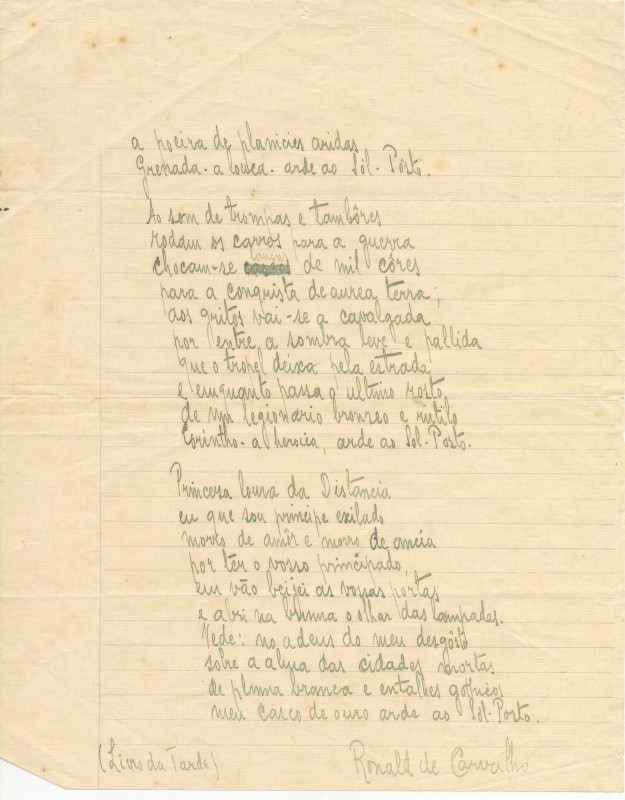 a poeira de planicies aridas
Grenada - a louca - arde ao Sól-Pôsto.
Ao som de trompas e tambôres
rodam os carros para a guerra
lanças
chocam-se de mil côres
para a conquista de aurea terra;
aos gritos vai-se a cavalgada
por entre a sombra leve e pallida
que o tropel deixa pela estrada
e emquanto passa o ultimo rosto
de um legionario bronzeo e rutilo
Corintho - a heroica, arde ao Sol-Posto.
Princeza loura da Distancia
eu que sou principe exilado
morro de amôr e morro de ancia
por têr o vosso principado,
em vão beijei as vossas pórtas
e abri na bruma o olhar das lampadas.
Vede: no adeus do meu desgôsto
sobre a alma das cidades mortas
de pluma branca e entalhes gothicos
meu casco de ouro arde ao Sól-Posto.
(Livro da Tarde) Ronald de Carvalho